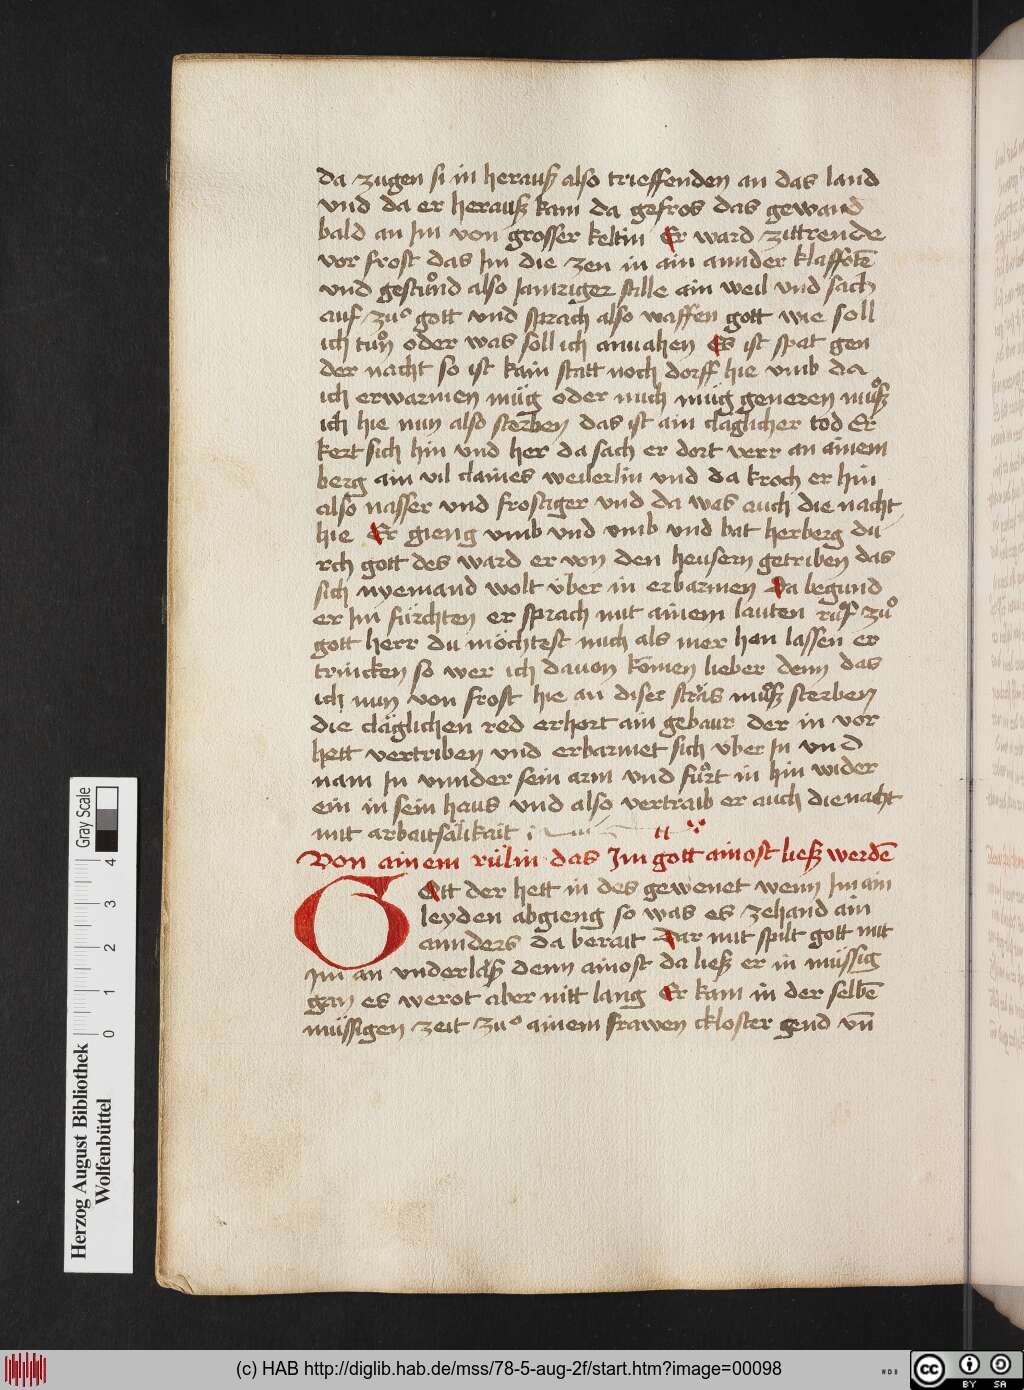 da zugen si in herauß also trieffenden an das land
vnd da er herauß kam da gefros das gewand
bald an Im von grosser keltin Er ward zittrende
vor frost das Im die zen in ain annder klaffotē
vnd gestuͦnd also Jamriger stille ain weil vnd sach
auf zuͦ gott vnd sprach also waffen gott wie soll
ich tuͦn oder was soll ich anuahen Es ist spat gen
der nacht so ist kain statt noch dorff hie vmb da
ich erwarmen müg oder mich müg generen muͦß
ich hie nun also sterben das ist ain claglicher tod Er
kert sich hin vnd her da sach er dort verr an ainem
berg ain vil claines weilerlin vnd da kroch er hin
also nasser vnd frostiger vnd da was auch die nacht
hie Er gieng vmb vnd vmb vnd bat herberg du
rch gott des ward er von den heusern getriben das
sich nyemand wolt vber in erbarmen Da begund
er Im fürchten er sprach mit ainem lauten ruͦf zuͦ
gott herr du möchtest mich als mer han lassen er
trincken so wer ich dauon komen lieber denn das
ich nun von frost hie an diser stras muͦß sterben
die cläglichen red erhort ain gebaur der in vor
hett vertriben vnd erbarmet sich vber In vnd
nam In vnnder sein arm vnd fuͦrt in hin wider
ein in sein haus vnd also vertraib er auch die nacht
mit arbaitsälikait
Von ainem rülin das Im gott ainost ließ werdē
Gott der hett in des gewenet wenn Im ain
leyden abgieng so was es zehand ain
annders da berait Dar mit spilt gott mit
Im an vnderlaß denn ainost da ließ er in müssig
gan es werot aber nitt lang Er kam in der selbē
müssigen zeit zuͦ ainem frawen ckloster gend vn̄
Gray Scale
4
3
2
1
0
Herzog August Bibliothek
Wolfenbüttel
(c) HAB http://diglib.hab.de/mss/78-5-aug-2f/start.htm?image=00098
cc BY SA